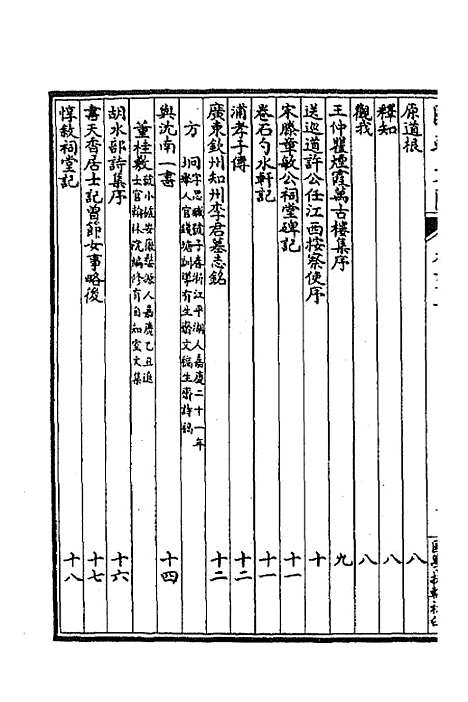 原道根 八
釋知 八
觀我 八
王仲瞿煙霞萬古樓集序 九
送巡道許公任江西按察使序 十
宋滕章敏公祠堂碑記 十一
卷石勺水軒記 十一
浦孝子傳 十二
廣東欽州知州李君墓志銘 十二
方坰 字思臧號子春浙江平湖人嘉慶二十一年
舉人官錢塘訓導有生齋文稿生齋詩稿
與沈南一書 十四
董桂敷 號小槎安徽婺源人嘉慶乙丑進
士官翰林院編修有自知室文集
胡水部詩集序 十六
書天香居士記曾節女事略後 十七
惇敘祠堂記 十八